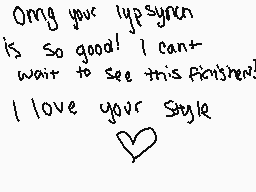 Omg your lypsyncn
is so good! I cant
wait to see this finished!
I love your style